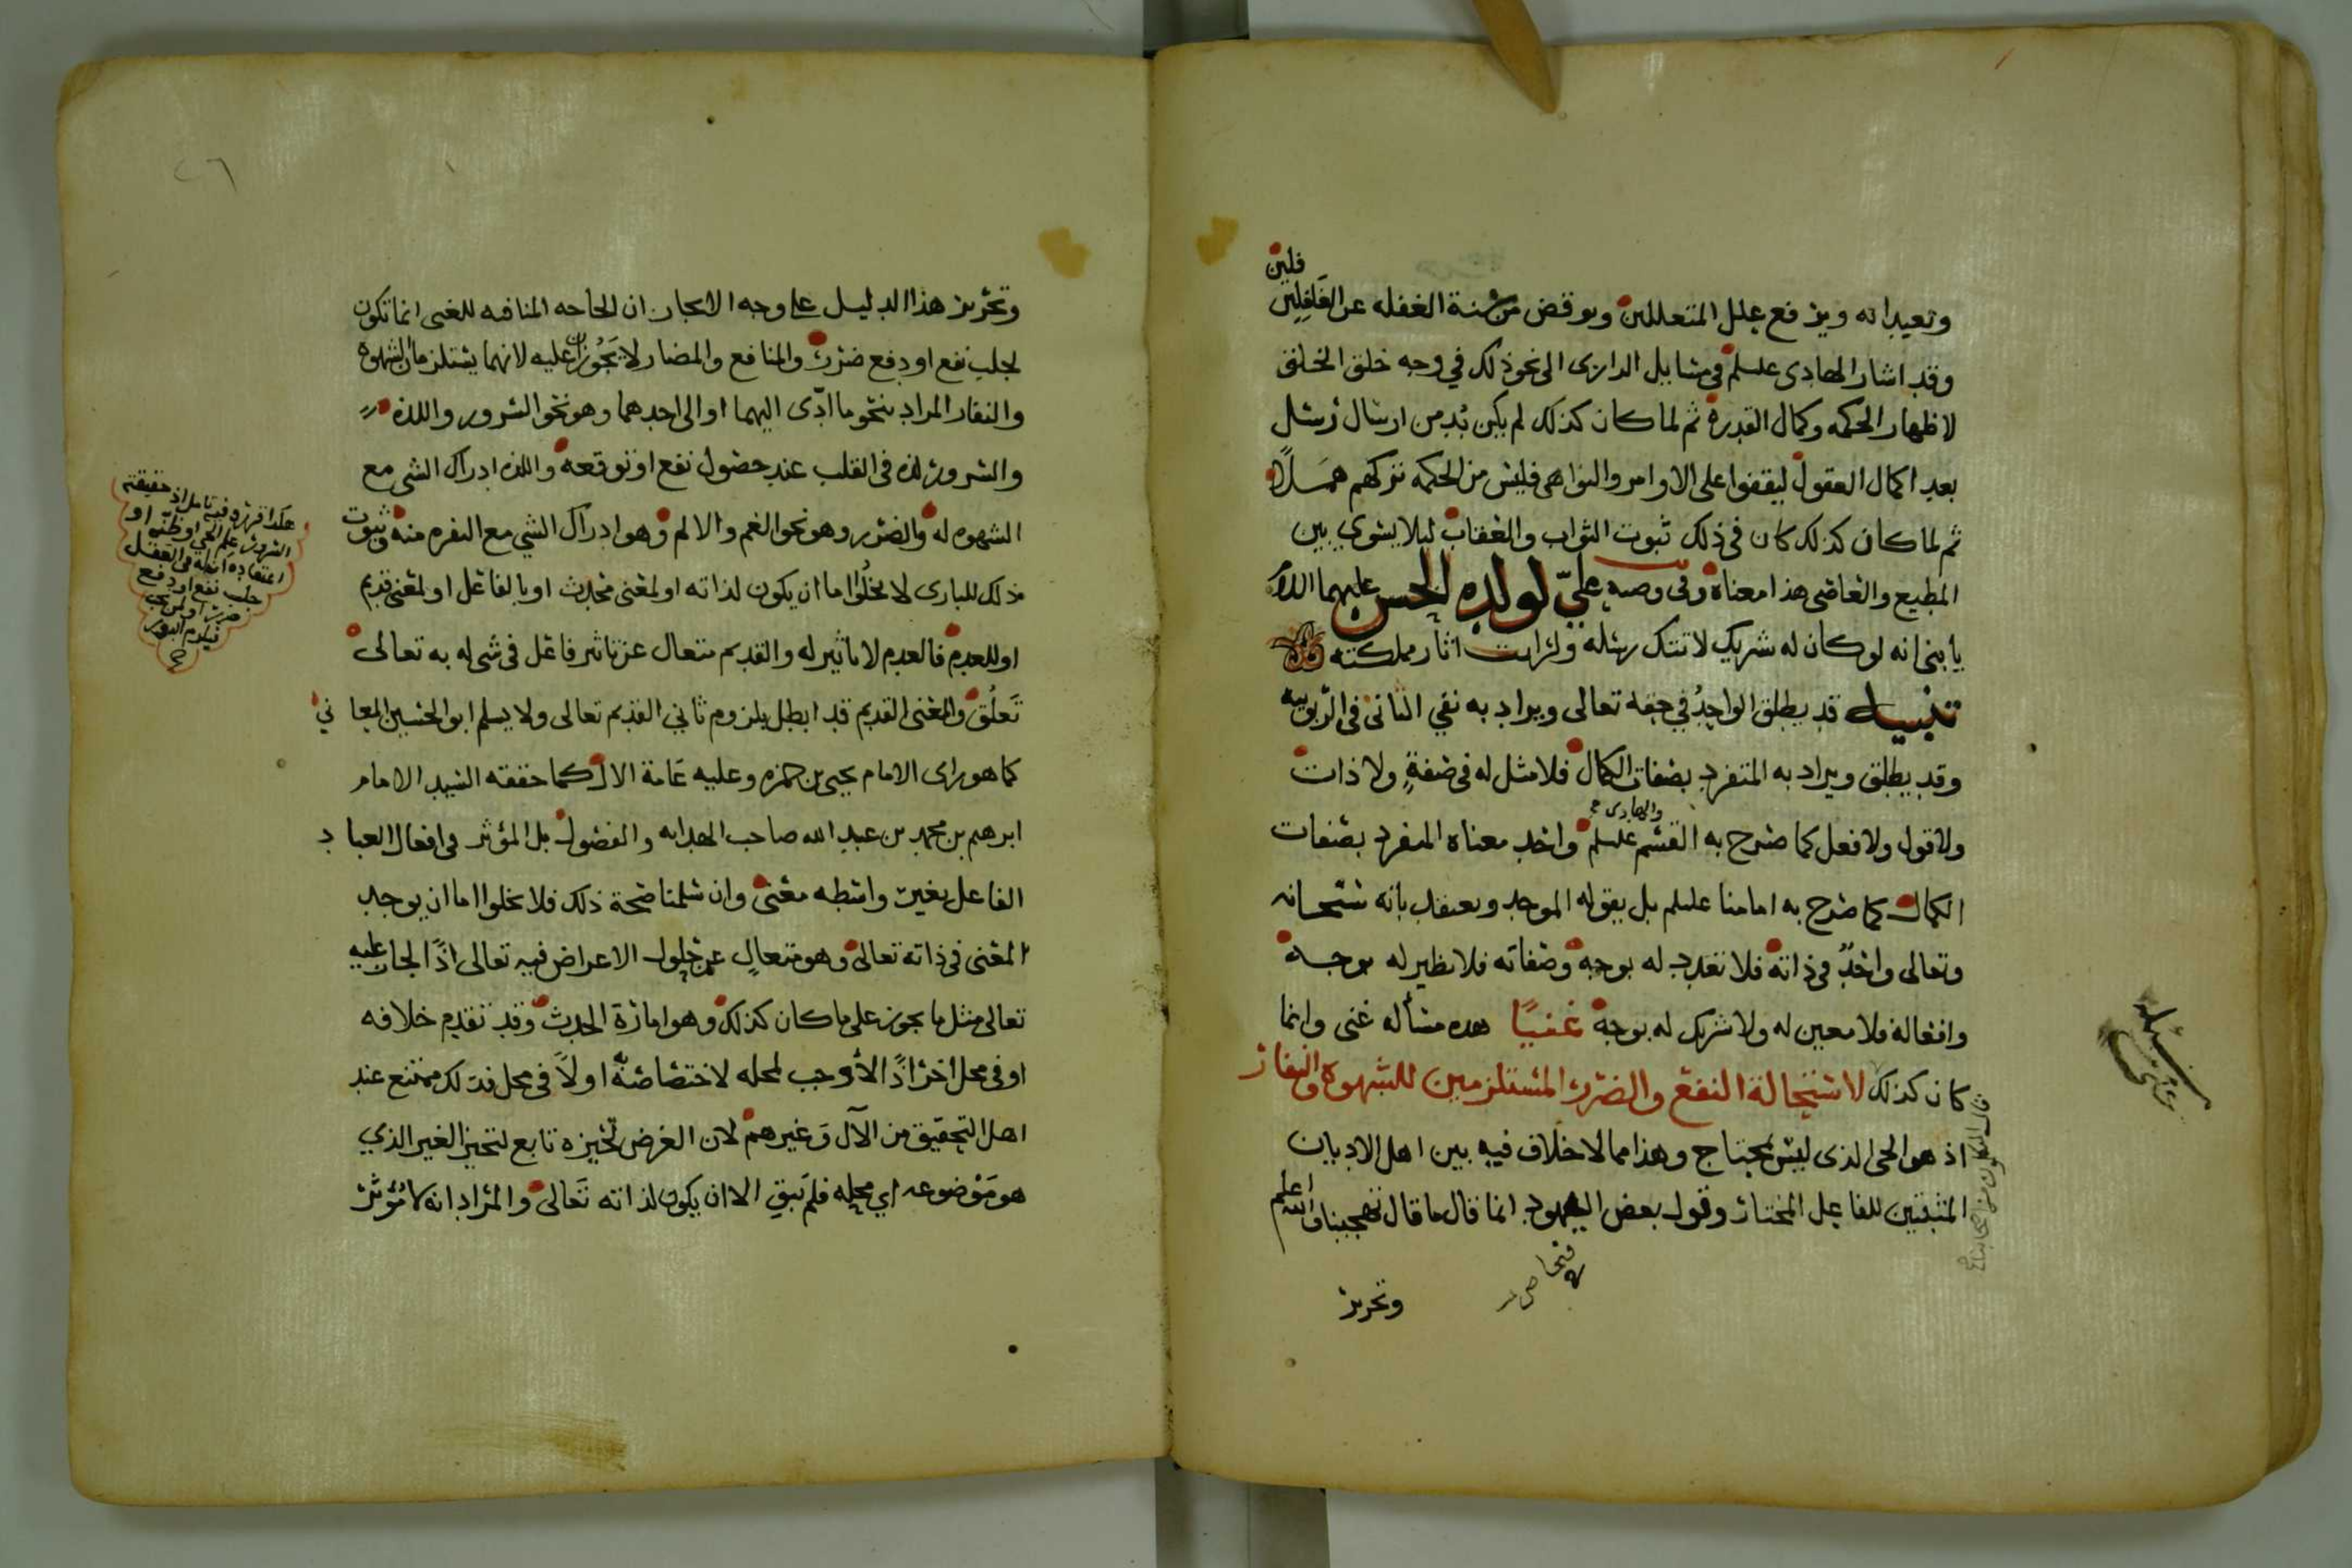 وتعبداته ويزفع علل المتعللين ويوقض من سنة الغفله عن الغافلين
وقد اشار الهادى علسلم في مسايل الرازى الى نحو ذلك في وجه خلق الخلق
لاظهار الحكمه وكمال القدرة ثم لما كان كذلك لم يكن بُد من ارسال رسل
بعد اكمال العقول ليقفوا على الاوامر والنواهى فليس من الحكمه تركهم همَلاً
ثم لما كان كذلك كان في ذلك ثبوت الثواب والعقاب ليلا يستوي بين
المطيع والعاصى هذا معناه وفى وصيه علىّ لولده الحسن عليهما السلام
يا بنى انه لو كان له شريك لاتتك رسله ولرات اثار مملكته
تنبيه قد يطلق الواحدُ في حقه تعالى ويراد به نفي الثانى فى الربوبيه
وقد يطلق ويراد به المتفرد بصفات الكمال فلا مثل له فى صفةٍ ولا ذات
والهادى
ولا قول ولا فعل كما صرح به القسم علسلم واحد معناه المتفرد بصفات
الكمال كما صرح به امامنا علسلم بل يقوله الموحد ويعتقد بانه سبحانه
وتعالى واحدٌ فى ذاته فلا تعدد له بوجه وصفاته فلا نظير له بوجه
وافعاله فلا معين له ولا شريك له بوجه غنيًا هذه مسأله غنى وانما
كان كذلك لاستحالة النفع والضرر المستلزمين للشهوة والنفار
اذ هو الحى الذى ليس بمحتاج وهذا مما لا خلاف فيه بين اهل الاديان
المثبتين للفاعل المختار وقول بعض اليهود انما قال ما قال تهجينا والله اعلم
وتحرير
وتحرير هذا الدليل على وجه الايجاز ان الحاجه المنافيه للغنى انما تكون
لجلب نفع او دفع ضرر والمنافع والمضار لا يَجُوزان عليه لانهما يستلزمان الشهوة
والنفار المراد بنحو ما ادّى اليهما او الى احدهما وهو نحو السرور واللذه
والسرور لذه فى القلب عند حصول نفع او توقعه واللذه ادراك الشى مع
الشهوه له والضرر وهو نحو الغم والالم وهو ادراك الشي مع النفره منه وثبوت
ذلك للبارى لا يخلُوا اما ان يكون لذاته او لمعنى محدث او بالفاعل او لمعنى قديم
او للعدم فالعدم لا تاثير له والقديم متعال عن تاثير فاعل فى شى له به تعالى
تَعلُق والمعنى القديم قد ابطل بلزوم ثاني القديم تعالى ولا يسلم ابو الحسين المعاني
كما هو راى الامام يحيى بن حمزه وعليه عَامة الال كما حققه السيد الامام
ابرهيم بن محمد بن عبد الله صاحب الهدايه والفصول بل المؤثر فى افعال العباد
الفاعل بغير واسطه معنى وان سلمنا صحة ذلك فلا يخلوا اما ان يوجد
المعنى فى ذاته تعالى وهو متعالٍ عن حلول الاعراض فيه تعالى اذًا لجاز عليه
تعالى مثل ما يجوز على ما كان كذلك وهو امارة الحدث وقد تقدم خلافه
او فى محل اخر اذًا لأوجب لمحله لاختصاصه او لاَ فى محل فذلك ممتنع عند
اهل التحقيق من الآل وَغيرهم لان العرض تحيزه تابع لتحيز الغير الذي
هو مَوْضوعه اي محله فلم تبق الا ان يكون لذاته تَعالى والمراد انه لا مُؤثر